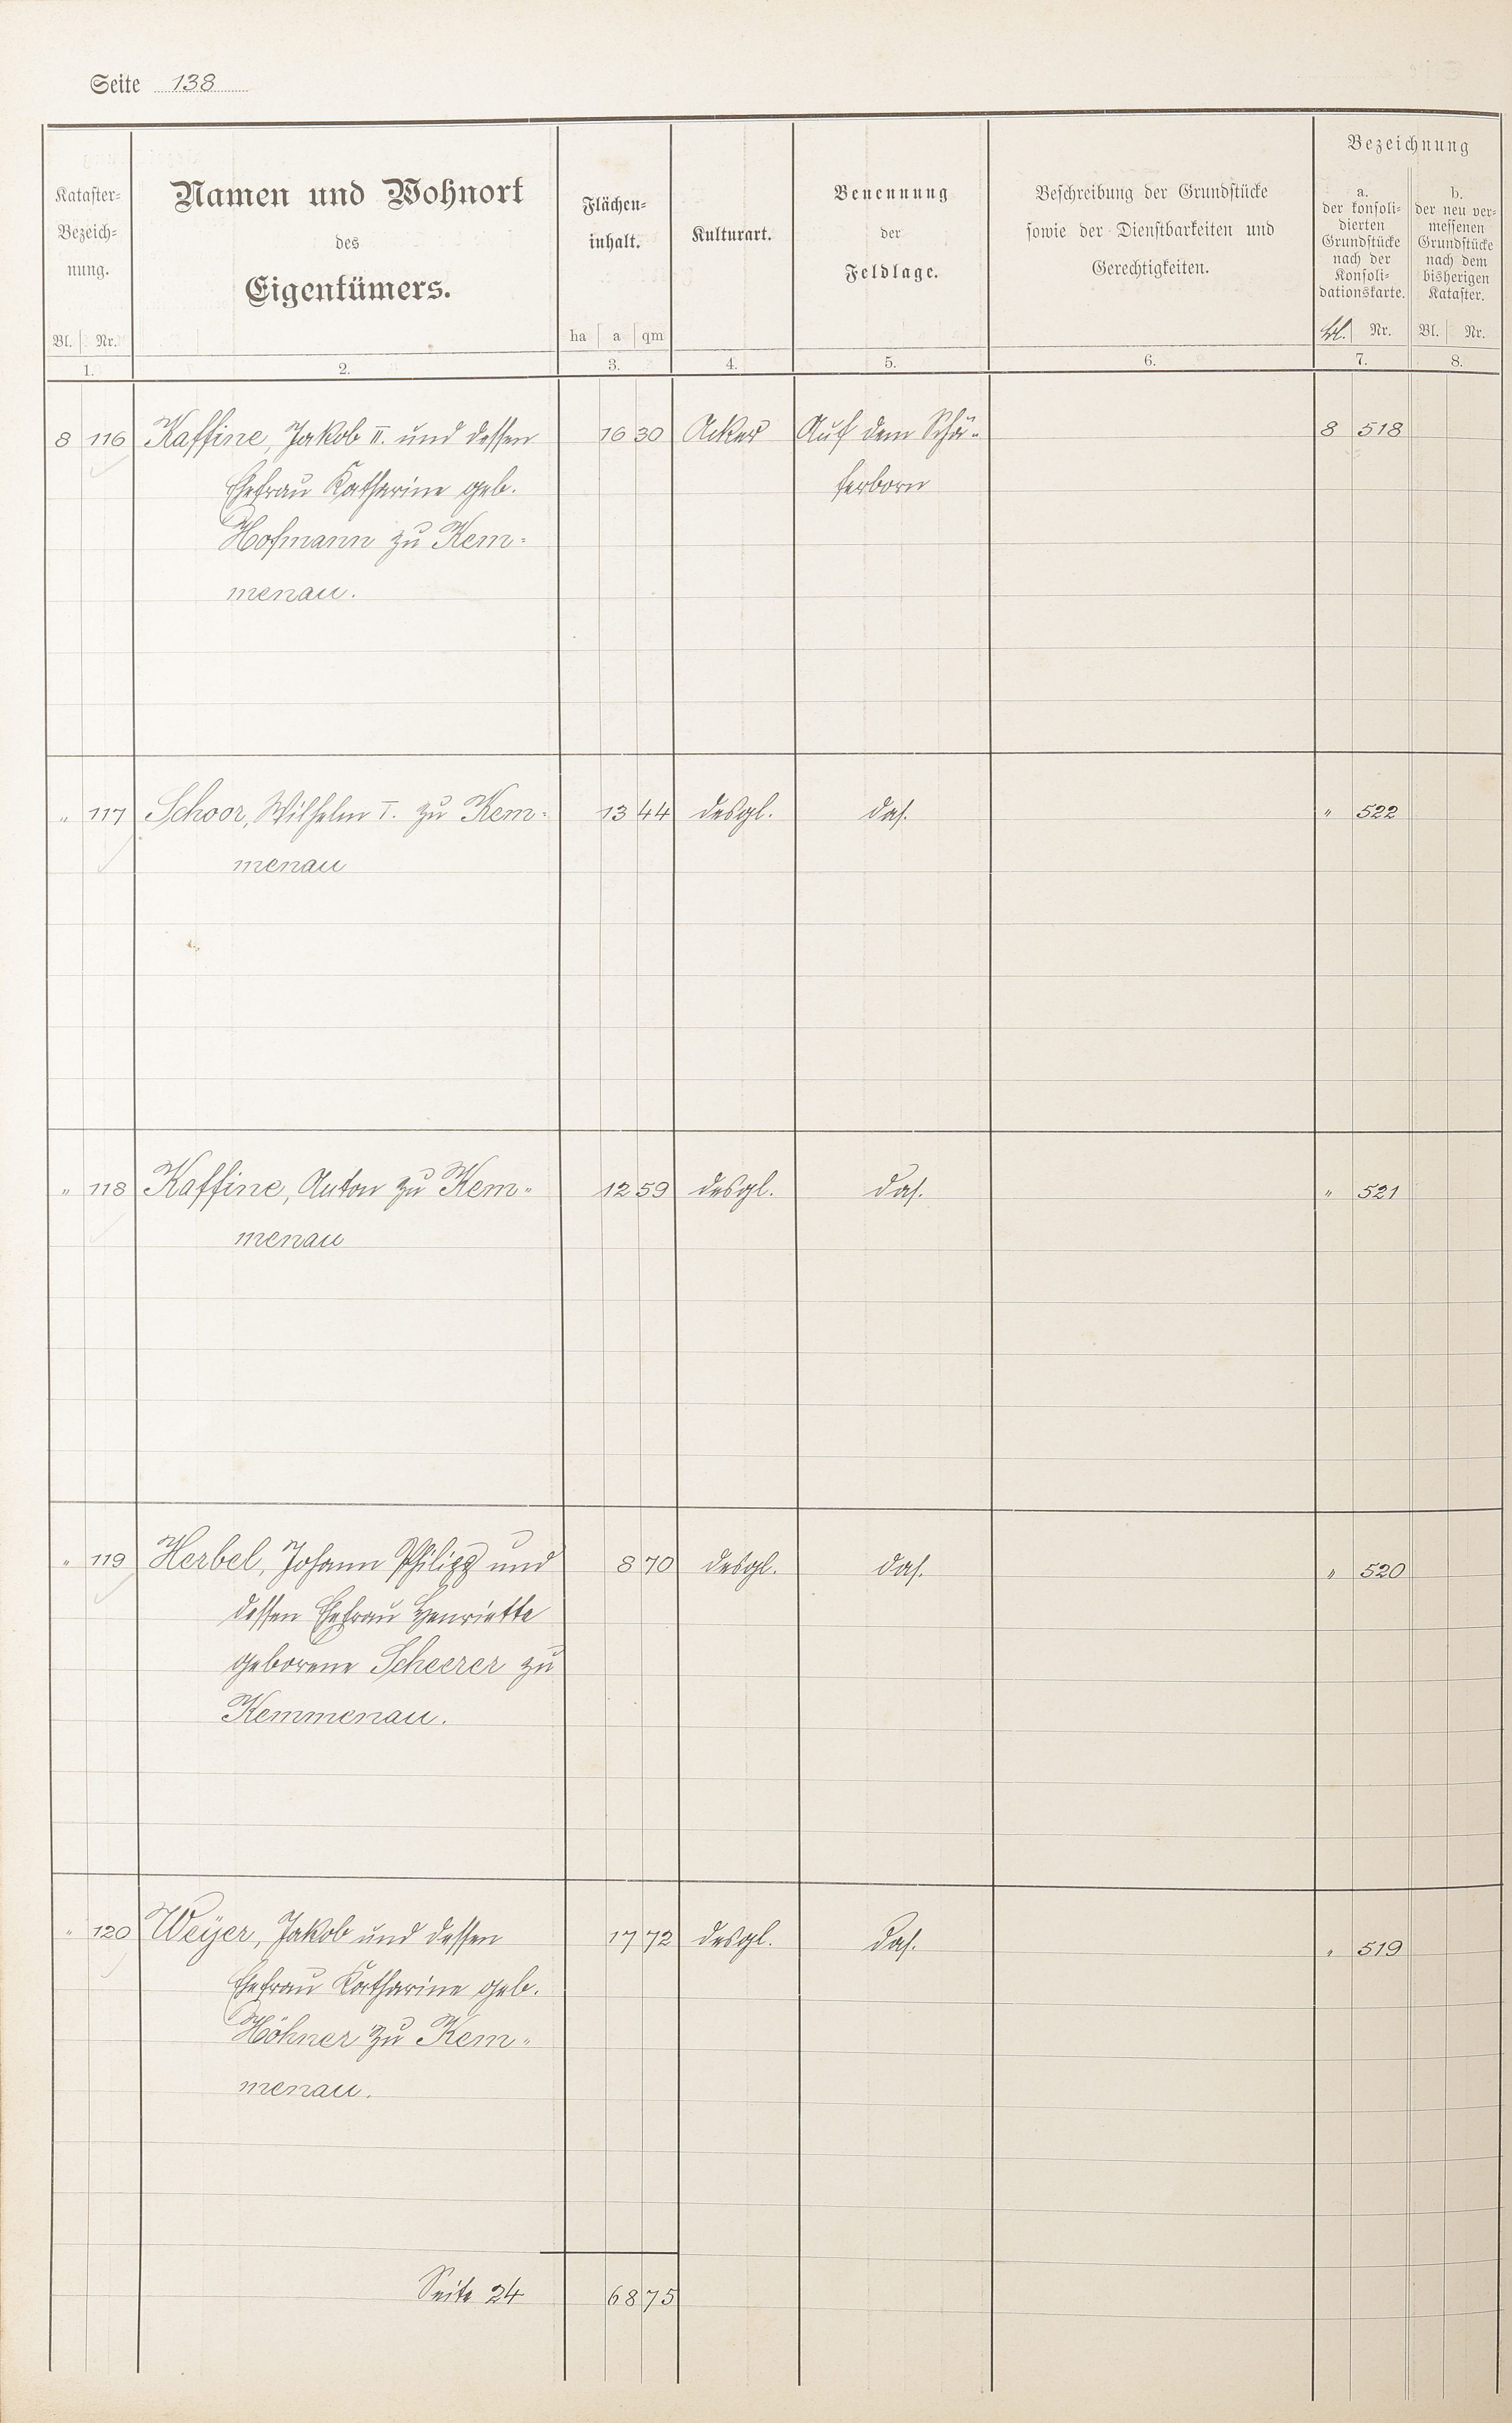 Seite 138
Kataster-
Bezeich-
nung.
Bl. Nr.
1.
Namen und Wohnort
des
Eigentümers.
2.
Flächen-
inhalt.
ha a qm
3.
Kulturart.
4.
Benennung
der
Feldlage.
5.
Beschreibung der Grundstücke
sowie der Dienstbarkeiten und
Gerechtigkeiten.
6.
Bezeichnung
a.
der konsoli-
dierten
Grundstücke
nach der
Konsoli-
dationskarte.
Bl. Nr.
7.
b.
der neu ver-
messenen
Grundstücke
nach dem
bisherigen
Kataster.
Bl. Nr.
8.
8 116 Kaffine, Jakob II. und dessen 16 30 Acker Auf dem Schä- 8 518
Ehefrau Katharine geb. ferborn
Hofmann zu Kem-
menau.
" 117 Schoor, Wilhelm I. zu Kem- 13 44 desgl. das. " 522
menau
" 118 Kaffine, Anton zu Kem- 12 59 desgl. das. " 521
menau
" 119 Herbel, Johann Philipp und 8 70 desgl. das. " 520
dessen Ehefrau Henriette
geborene Scheerer zu
Kemmenau.
" 120 Weyer, Jakob und dessen 17 72 desgl. das. " 519
Ehefrau Katharine geb.
Höhner zu Kem-
menau.
Seite 24 68 75